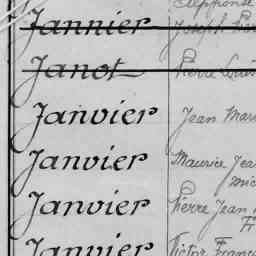 Jannier Joseph
Janot Pierre
Janvier Jean Mar
Janvier Maurice Jea
Janvier Pierre Jean
Janvier Victor Franç